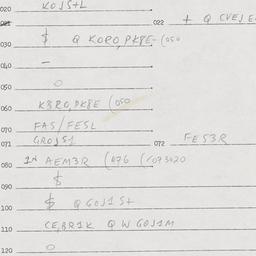 020 KOJS+L
021 022 + Q CVEJE
030 $ Q KORO,PK8E-(050
040 -
050 O
060 K8RO,PK8E (050
070 FAS/FESL
071 GROJS1 072 FES3R
080 1N AEM3R (076 (073020
090 $
100 $ Q GOJ1 S+
110 CE,BR1K Q W GOJ1M
120 O